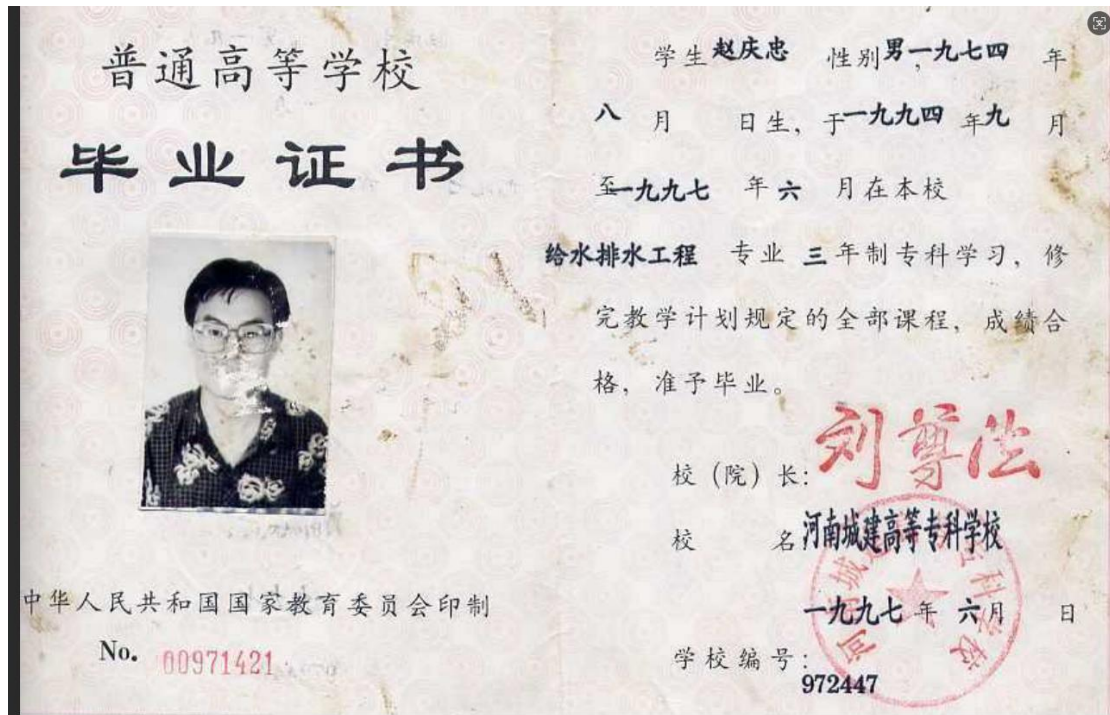 普通高等学校
毕业证书
中华人民共和国国家教育委员会印制
No. 00971421
学生赵庆忠 性别男,一九七四 年
八 月 日生，于一九九四 年九 月
至一九九七 年六 月在本校
给水排水工程 专业 三年制专科学习，修
完教学计划规定的全部课程，成绩合
格，准予毕业。
校（院）长：刘尊法
校 名 河南城建高等专科学校
一九九七年 六月 日
学校编号：
972447